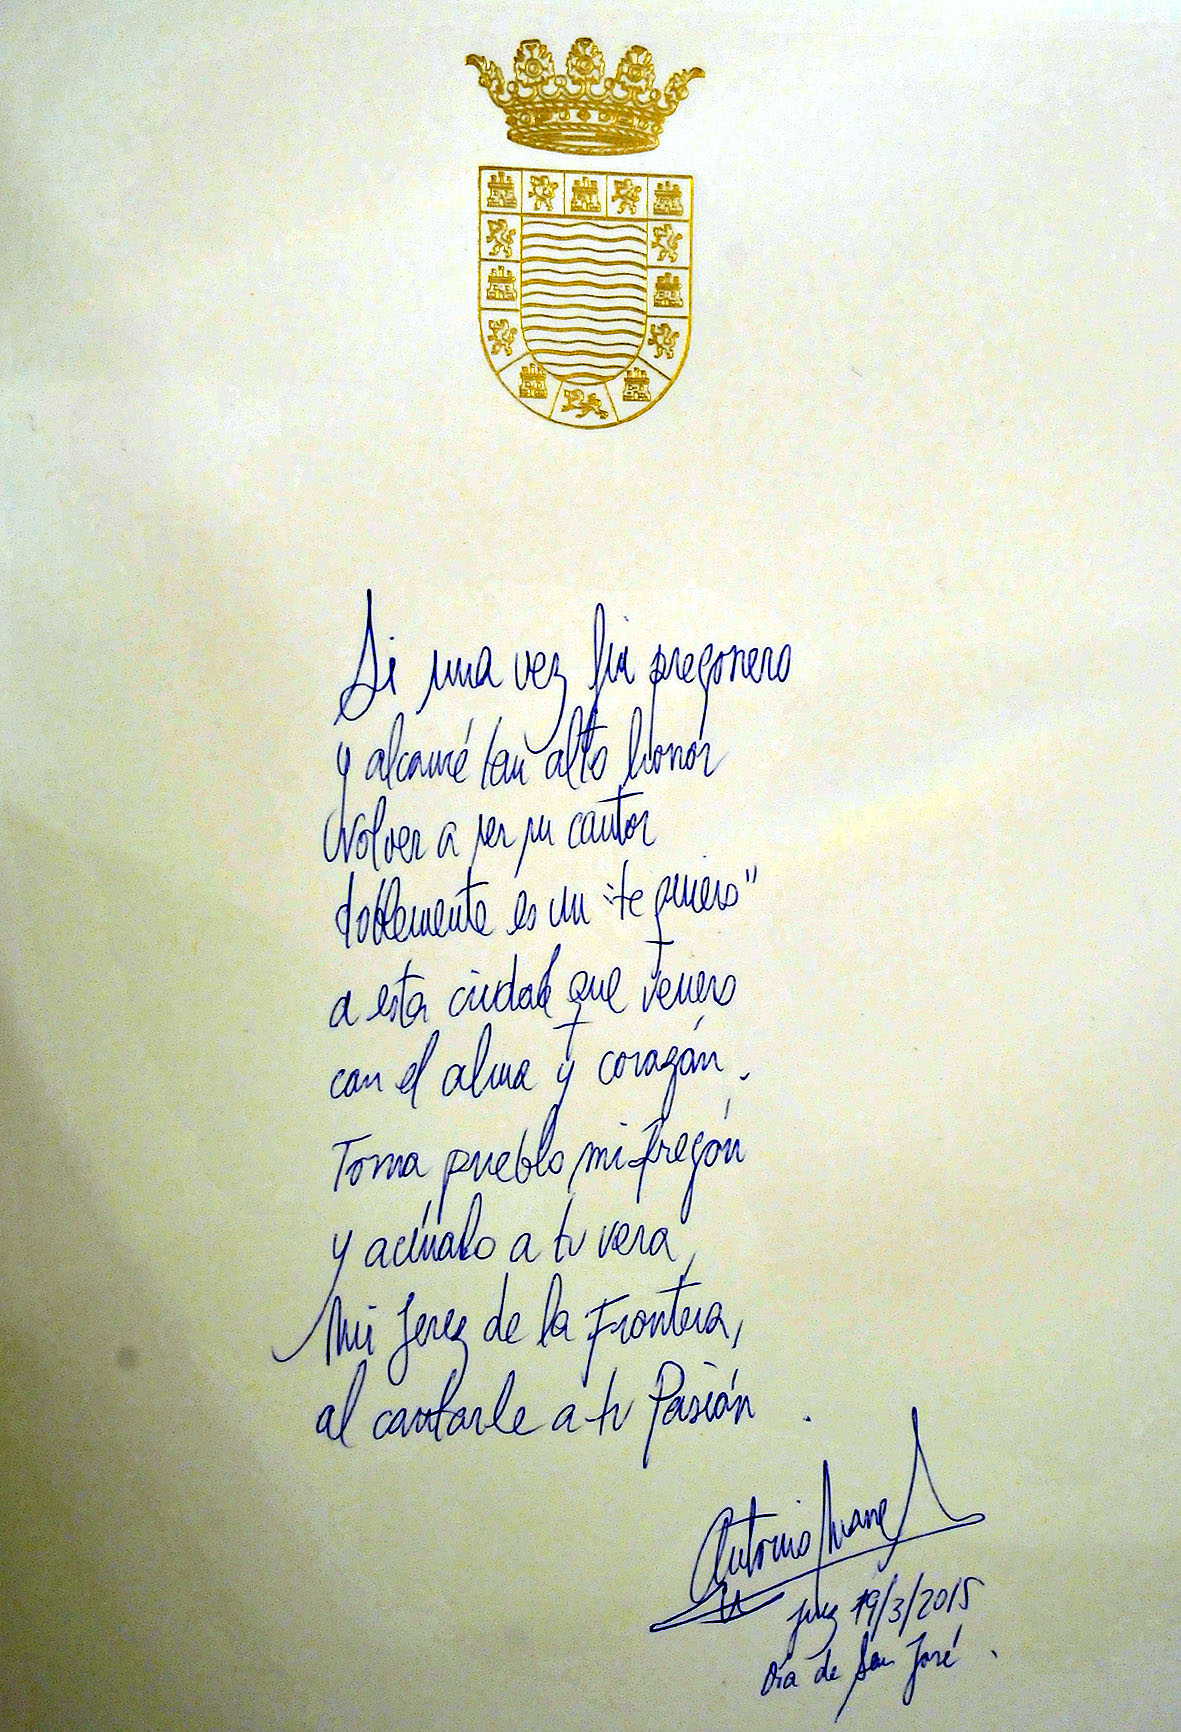 Si una vez fui pregonero
y alcancé tan alto honor
volver a ser su cantor
doblemente es un "te quiero"
a esta ciudad que venero
con el alma y corazón.
Toma pueblo mi Pregón
y acúnalo a tu vera,
Mi Jerez de la Frontera,
al cantarle a tu Pasión.
Antonio
Jerez 19/3/2015
Día de San José.